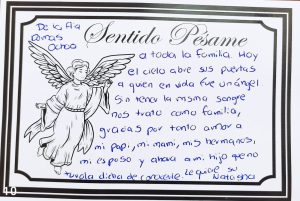 De la Fla
Dennas
Ochoa
Sentido Pésame
a toda la familia. Hoy
el cielo abre sus puertas
a quien en vida fue un ángel
Sin tener la misma sangre
nos trato como familia,
gracias por tanto amor a
mi papi, mi mami, mis hermanos,
mi esposo y ahora a mi hijo que no
tuvo la dicha de conocerle. Le quise
Natasha
10